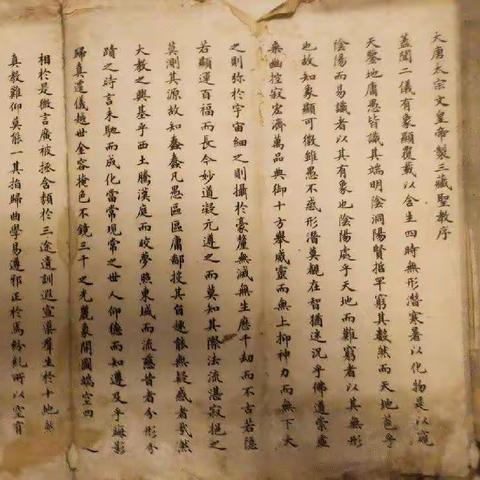 大唐太宗文皇帝製三藏聖教序
蓋聞二儀有象顯覆載以含生四時無形潛寒暑以化物是以窺
天鑒地庸愚皆識其端明陰洞陽賢哲罕窮其數然而天地苞乎
陰陽而易識者以其有象也陰陽處乎天地而難窮者以其無形
也故知象顯可徵雖愚不惑形潛莫覩在智猶迷況乎佛道崇虛
乘幽控寂宏濟萬品典御十方舉威靈而無上抑神力而無下大
之則彌於宇宙細之則攝於豪釐無滅無生歷千劫而不古若隱
若顯運百福而長今妙道凝元遵之而莫知其際法流湛寂挹之
莫測其源故知蠢蠢凡愚區區庸鄙投其旨趣能無疑惑者哉然
大教之興基乎西土騰漢庭而皎夢照東域而流慈昔者分形分
蹟之時言未馳而成化當常現常之世人仰德而知遵及乎晦影
歸真遷儀越世金容掩色不鏡三千之光麗象開圖端空四八
相於是微言廣被拯含類於三途遺訓遐宣導群生於十地然
真教難仰莫能一其指歸曲學易遵邪正於焉紛糺所以空有